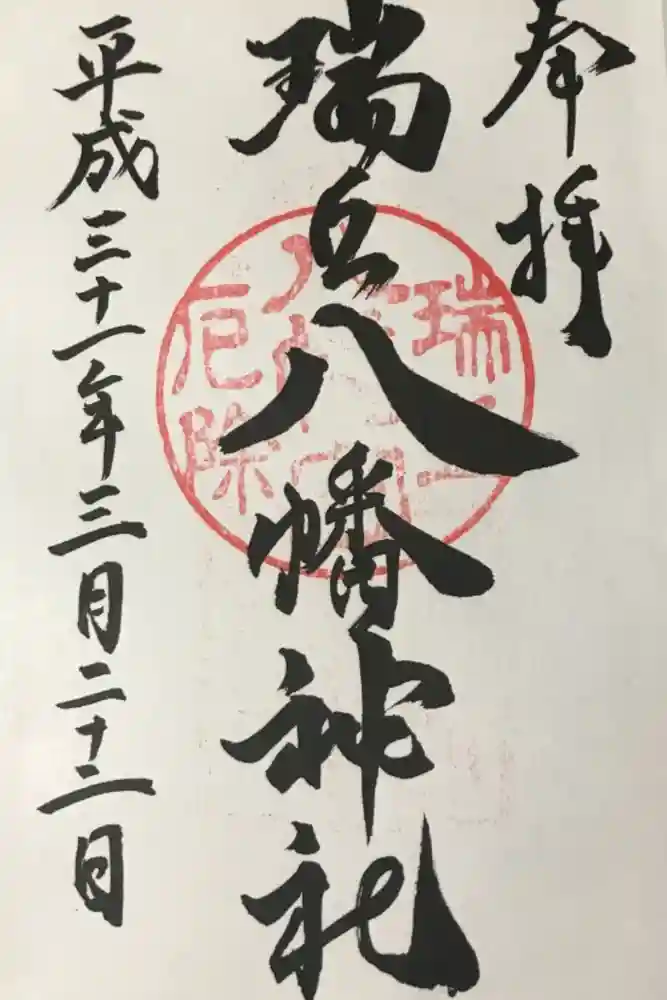 奉拝
瑞丘八幡神社
平成三十一年三月二十二日
瑞丘
八幡
厄除